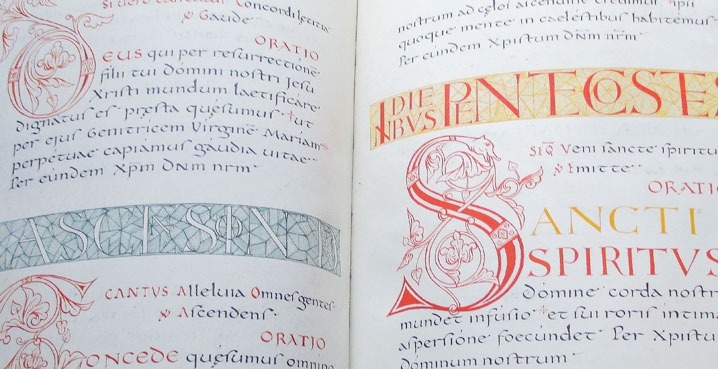 Concordi lætitia
& Gaude
ORATIO
DEUS qui per resurrectionē
filii tui Domini nostri Jesu
Xristi mundum laetificare
dignatus es præsta quęsumus ut
per ejus Genitricem Virginē Mariam
perpetuae capiamus gaudia vitae
Per eundem Xpm Dnm nrm
ASCENSION
CANTUS Alleluia Omnes gentes
& Ascendens
ORATIO
CONCEDE quęsumus omnipo
nostrum ad cęlos ascendisse
quoque mente in caelestibus habitemus
Per eundem Xpistum Dnm nrm
IN DIEBUS PENTECOSTE
SEQ Veni sancte spiritu
& Emitte
ORATIO
SANCTI
SPIRITUS
Domine corda nostr
mundet infusio et sui roris intima
aspersione foecundet Per Xpistu
Dominum nostrum